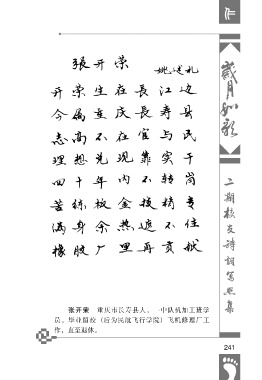 张开荣
姚述礼
开荣生在长江边
今属重庆长寿县
志高不在官与民
理想兑现靠实干
四十年内不转岗
苦练极金技精专
满身余热遮不住
橡胶厂里再贡献
张开荣 重庆市长寿县人。一中队机加工班学
员。毕业留校（后为民航飞行学院）飞机修理厂工
作，直至退休。
岁月如歌
二期校友诗词写照集
241